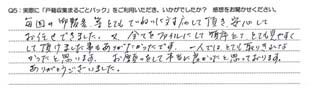 Q5：実際に「戸籍収集まるごとパック」をご利用いただき、いかがでしたか？ 感想をお聞かせください。
毎回の御報告等とてもていねいに対応して頂き安心して
お任せできました。又、全てをファイルにして頂き とても見やすくして
頂けました事もありがたかったです。一人ではとても取りきれな
かったと思います。お願いをして本当に良かったと思っております。
ありがとうございました。